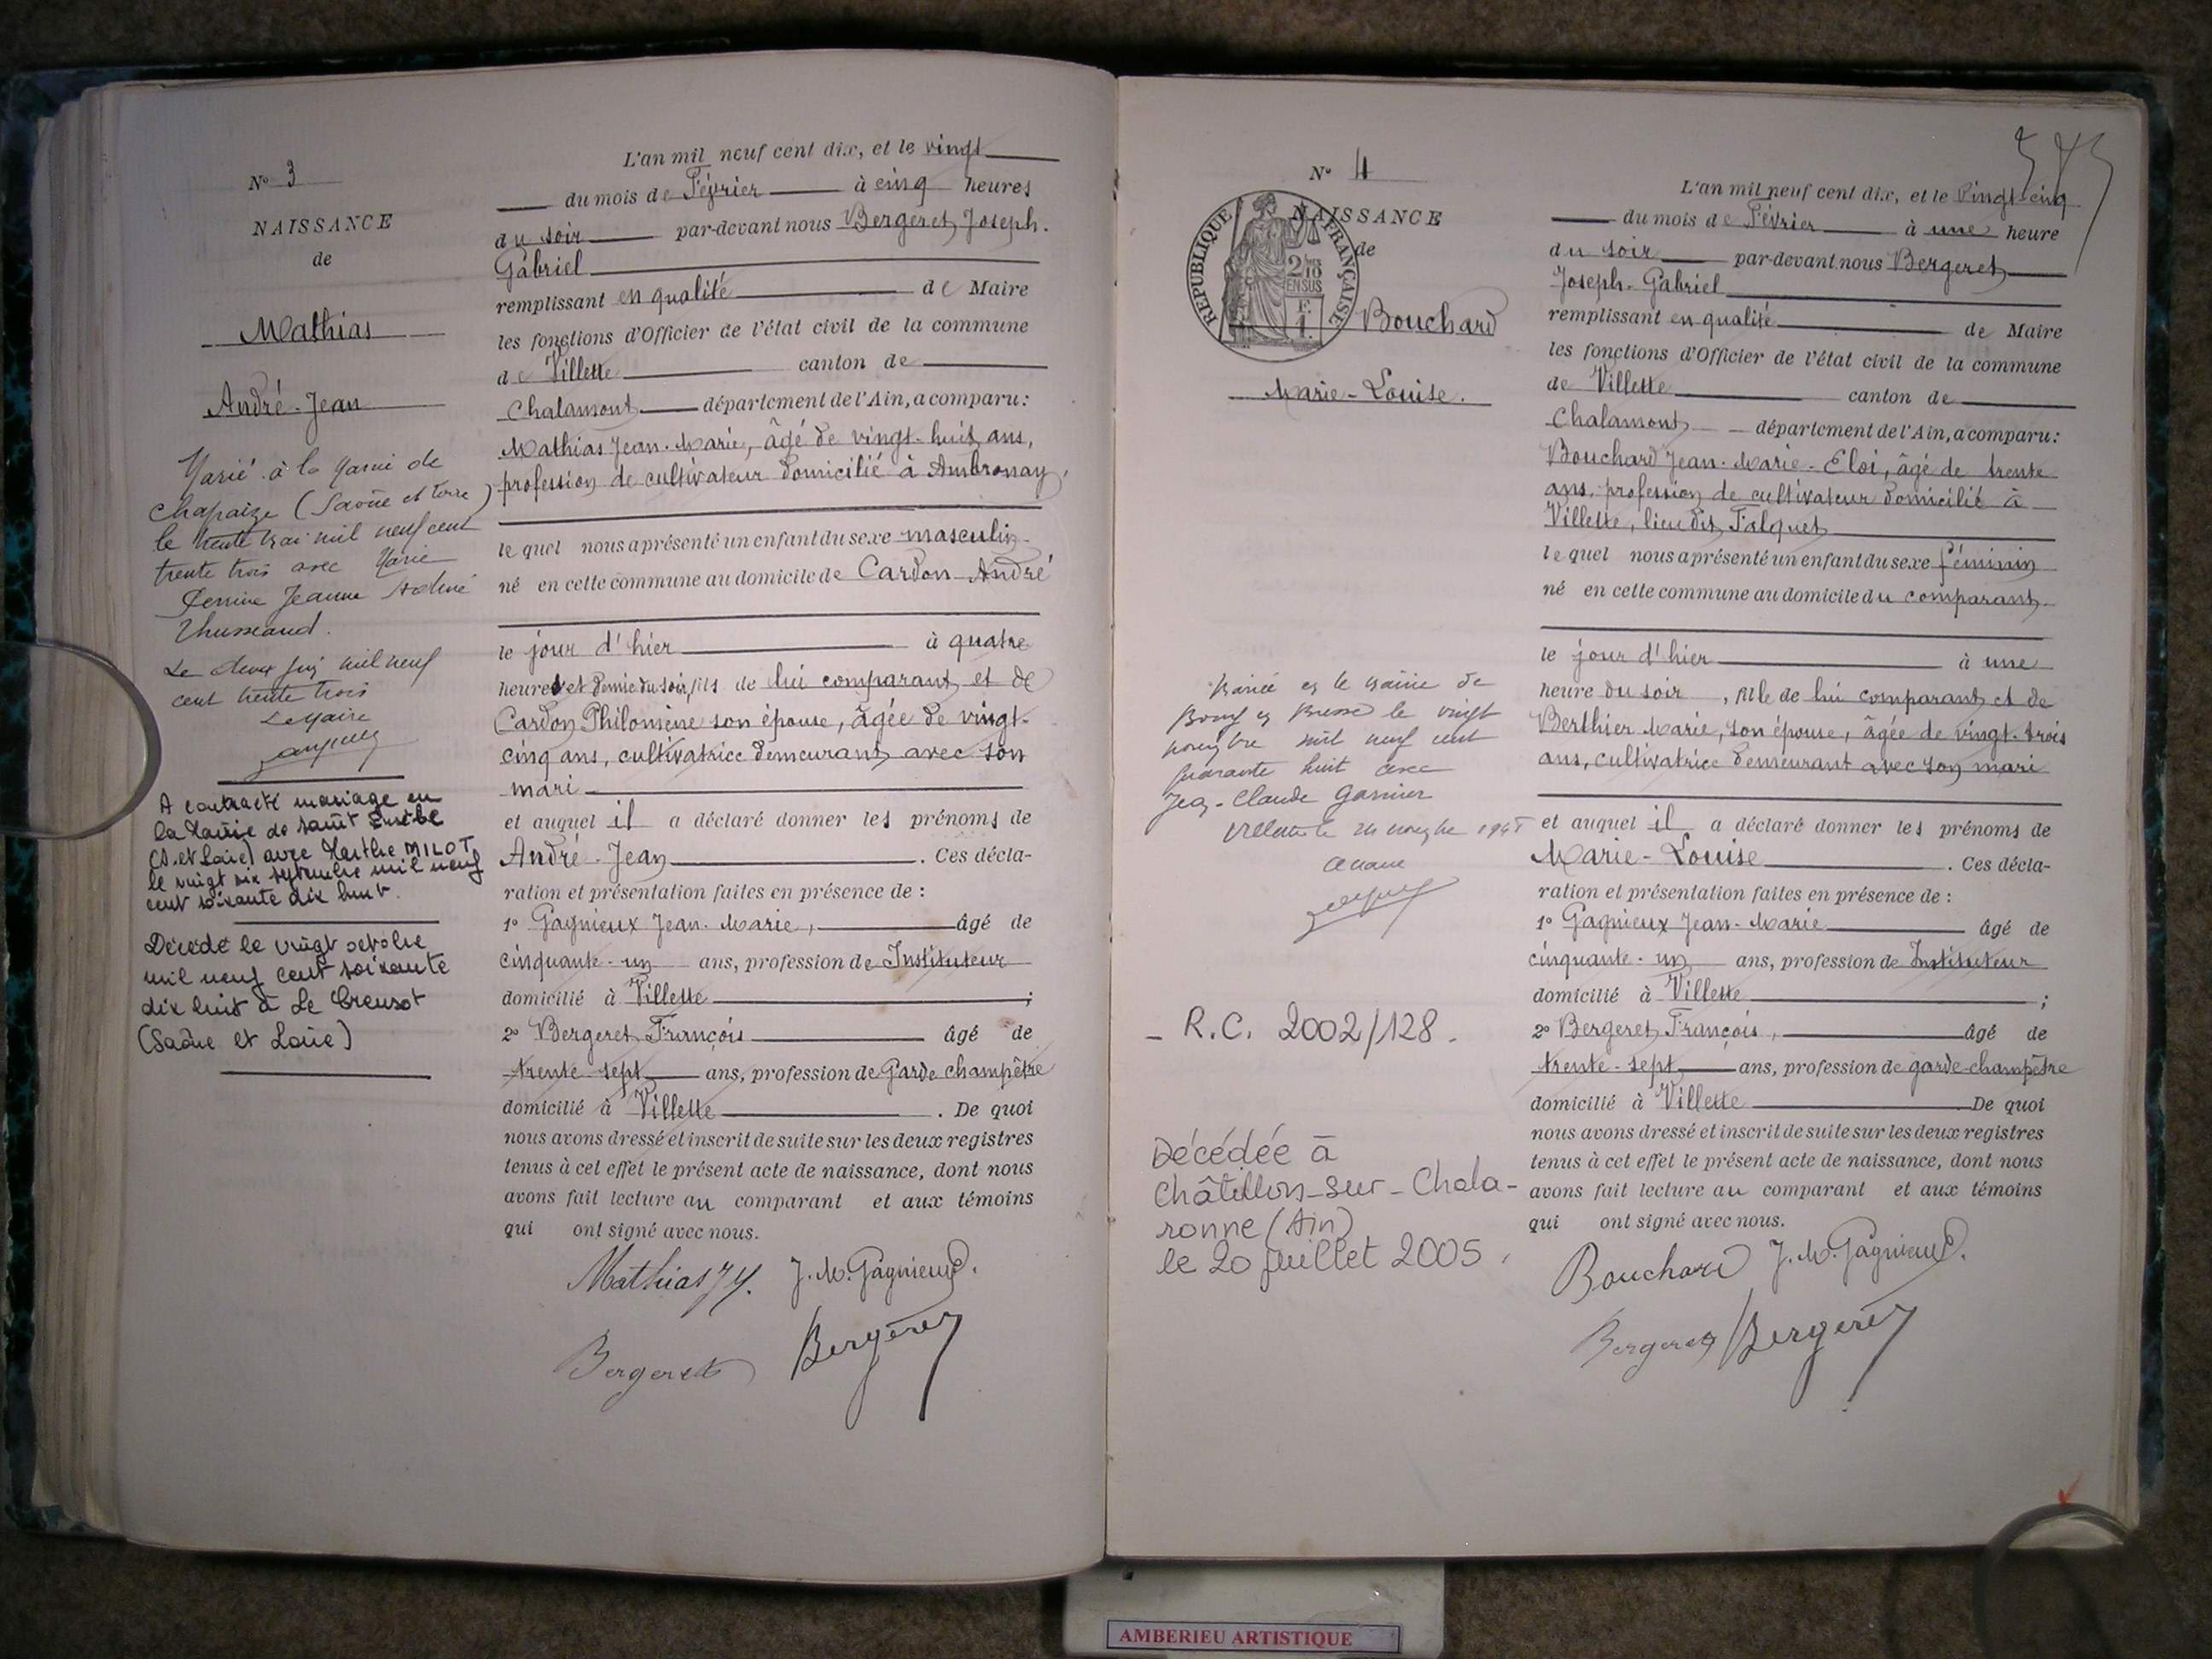 N° 3
NAISSANCE
de
Mathias
André-Jean
Marié à la Mairie de
Chapaize (Saône et Loire)
le trente mai mil neuf cent
trente trois avec Marie
Perrine Jeanne
Thusseaud.
Le deux juin mil neuf
cent trente trois
Le Maire
A contracté mariage en
la Mairie de Saint Eusèbe
(S. et Loire) avec Marthe MILOT
le vingt six septembre mil neuf
cent soixante dix huit.
Décédé le vingt octobre
mil neuf cent soixante
dix huit à Le Creusot
(Saône et Loire)
L'an mil neuf cent dix, et le vingt
du mois de Février à cinq heures
du soir par-devant nous Bergeret, Joseph.
Gabriel
remplissant en qualité de Maire
les fonctions d'Officier de l'état civil de la commune
de Villette canton de
Chalamont département de l'Ain, a comparu:
Mathias Jean-Marie, âgé de vingt-huit ans,
profession de cultivateur domicilié à Ambronay,
le quel nous a présenté un enfant du sexe masculin
né en cette commune au domicile de Cardon André
le jour d'hier à quatre
heures et demie du soir, fils de lui comparant et de
Cardon Philomène son épouse, âgée de vingt-
cinq ans, cultivatrice demeurant avec son
mari
et auquel il a déclaré donner les prénoms de
André-Jean. Ces décla-
ration et présentation faites en présence de :
1° Gagnieux Jean-Marie, âgé de
cinquante-un ans, profession de Instituteur
domicilié à Villette ;
2° Bergeret François âgé de
trente-sept ans, profession de Garde champêtre
domicilié à Villette. De quoi
nous avons dressé et inscrit de suite sur les deux registres
tenus à cet effet le présent acte de naissance, dont nous
avons fait lecture au comparant et aux témoins
qui ont signé avec nous.
Mathias J M. J. M. Gagnieux.
Bergeret Bergeret
N° 4
NAISSANCE
de
REPUBLIQUE FRANÇAISE
2/10
EN SUS
F.
1.
Bouchard
Marie-Louise.
Mariée en la Mairie de
Bourg en Bresse le vingt
novembre mil neuf cent
quarante huit avec
Jean-Claude Garnier
Villette le 24 novembre 1948
Le Maire
- R.C. 2002/128.
Décédée à
Châtillon-sur-Chala-
ronne (Ain)
le 20 juillet 2005.
L'an mil neuf cent dix, et le Vingt-cinq
du mois de Février à une heure
du soir par-devant nous Bergeret
Joseph-Gabriel
remplissant en qualité de Maire
les fonctions d'Officier de l'état civil de la commune
de Villette canton de
Chalamont département de l'Ain, a comparu:
Bouchard Jean-Marie-Eloi, âgé de trente
ans, profession de cultivateur domicilié à
Villette, lieu dit Falquet
le quel nous a présenté un enfant du sexe féminin
né en cette commune au domicile du comparant
le jour d'hier à une
heure du soir, fille de lui comparant et de
Berthier Marie, son épouse, âgée de vingt-trois
ans, cultivatrice demeurant avec son mari
et auquel il a déclaré donner les prénoms de
Marie-Louise. Ces décla-
ration et présentation faites en présence de :
1° Gagnieux Jean-Marie âgé de
cinquante-un ans, profession de Instituteur
domicilié à Villette ;
2° Bergeret François, âgé de
trente-sept ans, profession de garde-champêtre
domicilié à Villette De quoi
nous avons dressé et inscrit de suite sur les deux registres
tenus à cet effet le présent acte de naissance, dont nous
avons fait lecture au comparant et aux témoins
qui ont signé avec nous.
Bouchard J. M. Gagnieux.
Bergeret Bergeret
AMBERIEU ARTISTIQUE